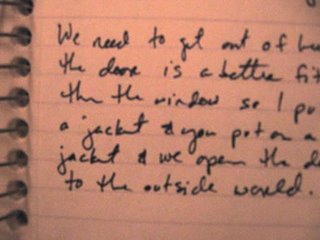 We need to get out of
the door is a better fit
than the window so I
a jacket & you put on a
jacket & we open the
to the outside world.